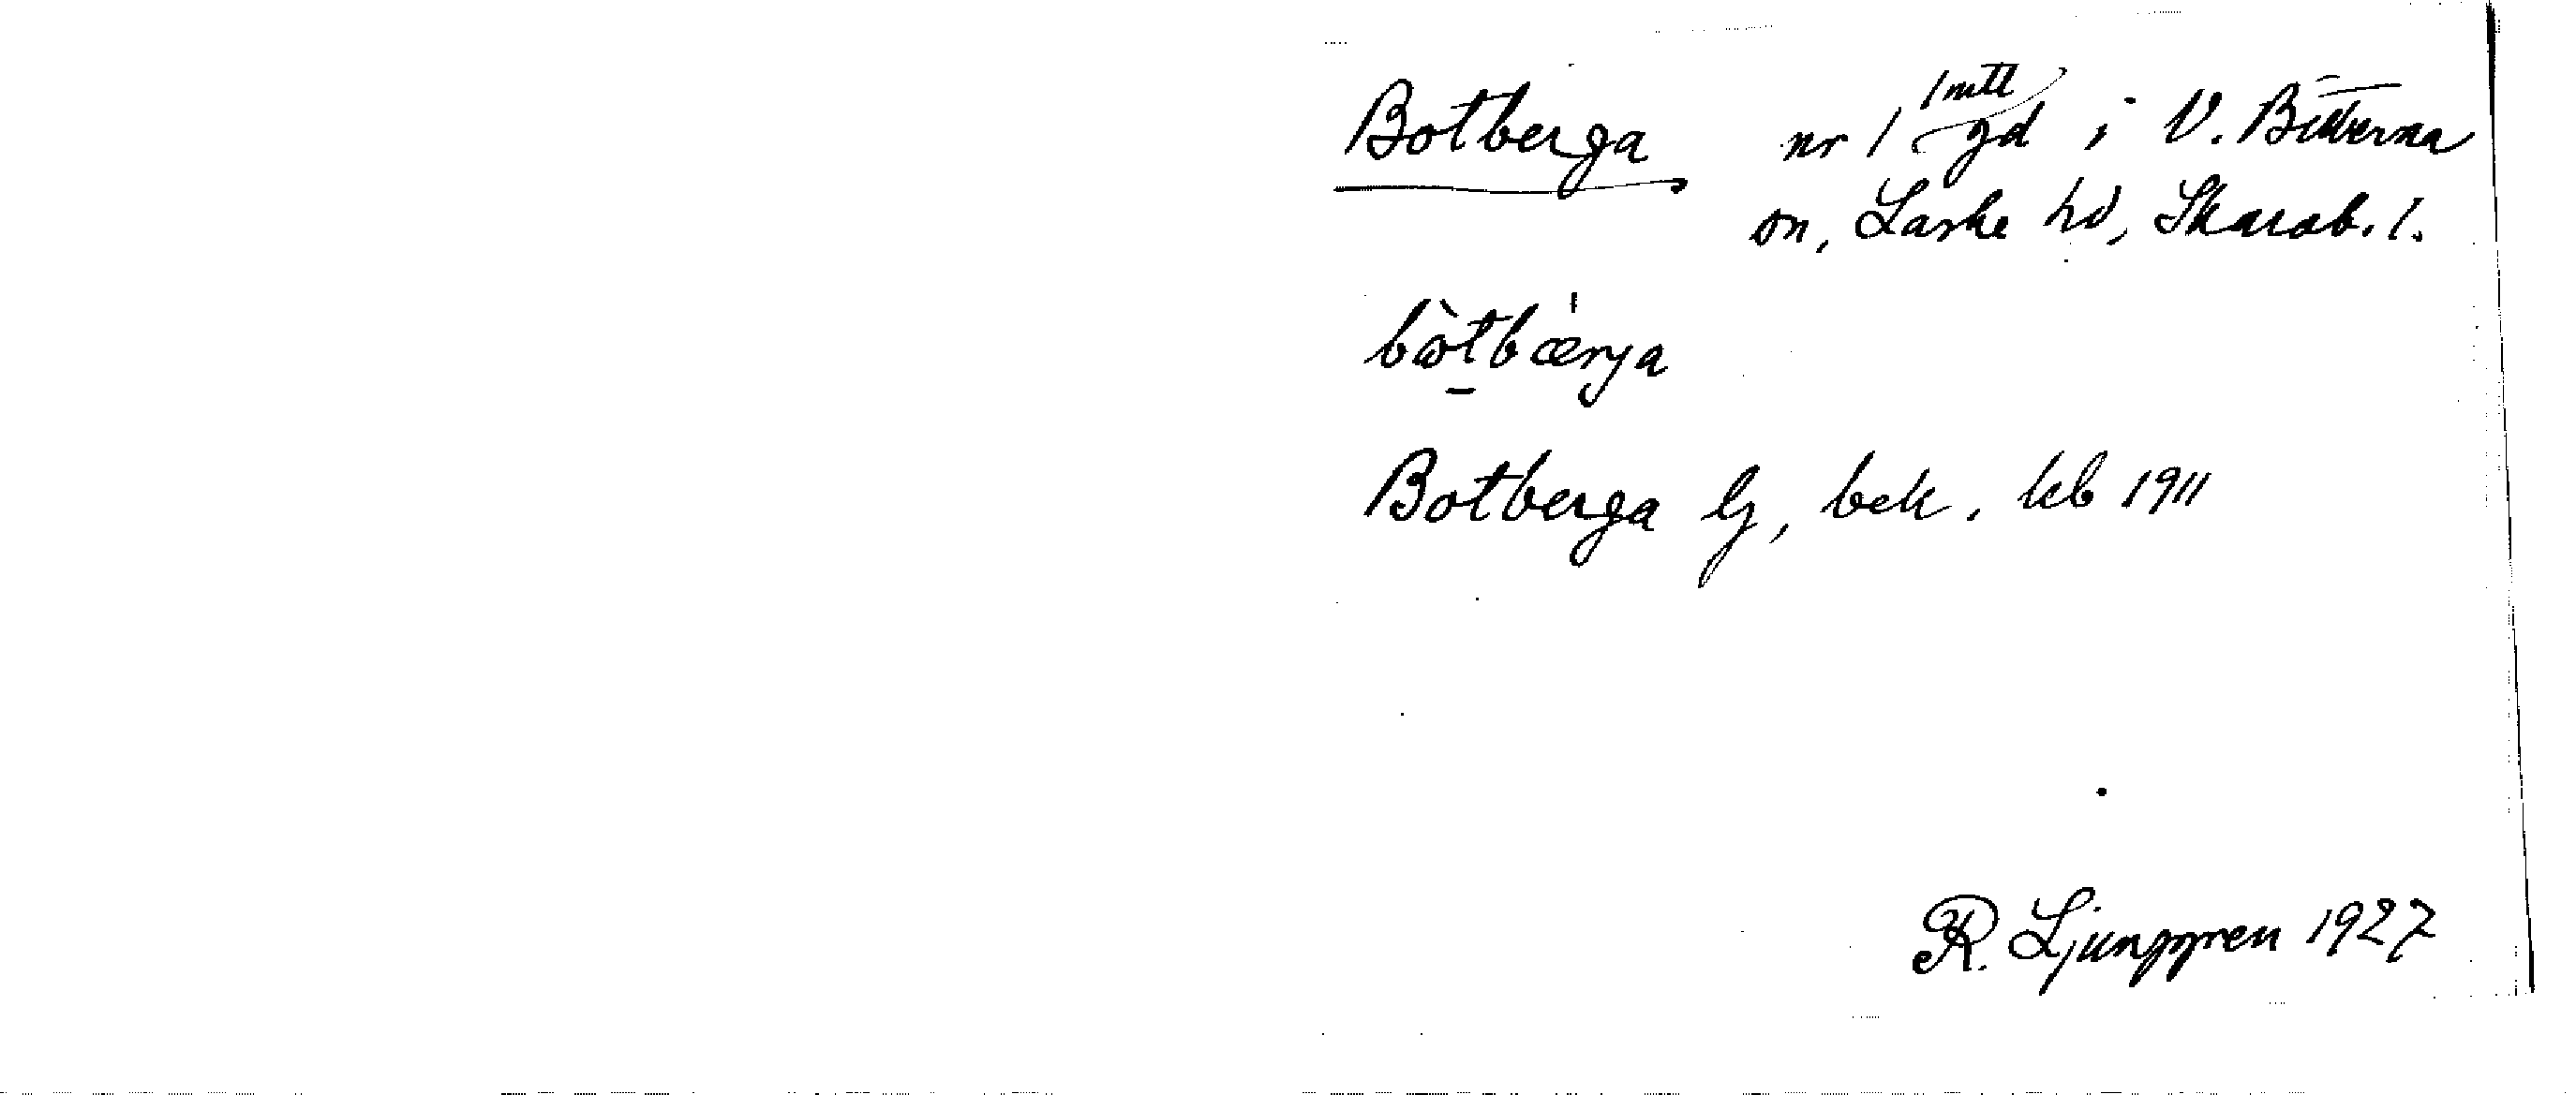 Botberga nr 1 1 mtl gd i V. Bitterna
sn, Laske hd, Skarab. l.
bòtbærja
Botberga lj, bek. kb 1911
R. Ljunggren 1927